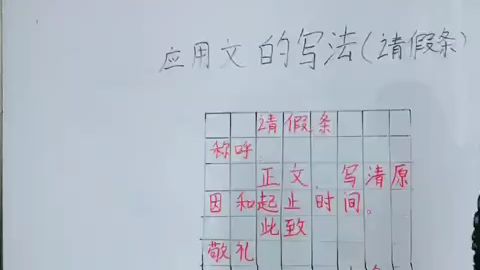 应用文的写法(请假条)
请假条
称呼:
正文,写清原
因和起止时间。
此致
敬礼